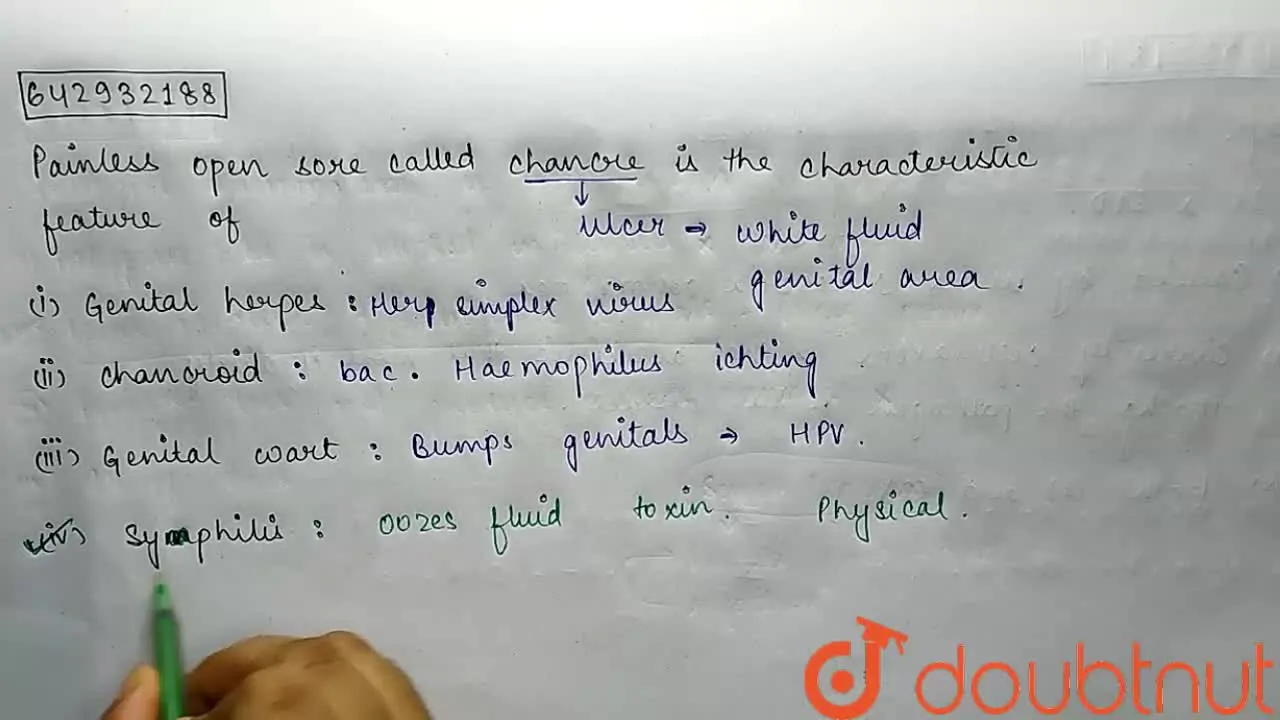 642932188
Painless open sore called chancre is the characteristic
feature of
ulcer → white fluid
genital area.
(i) Genital herpes : Herp simplex virus
(ii) chancroid : bac. Haemophilus ichting
(iii) Genital wart : Bumps genitals → HPV.
(iv) Syphilis : oozes fluid toxin. Physical.
doubtnut